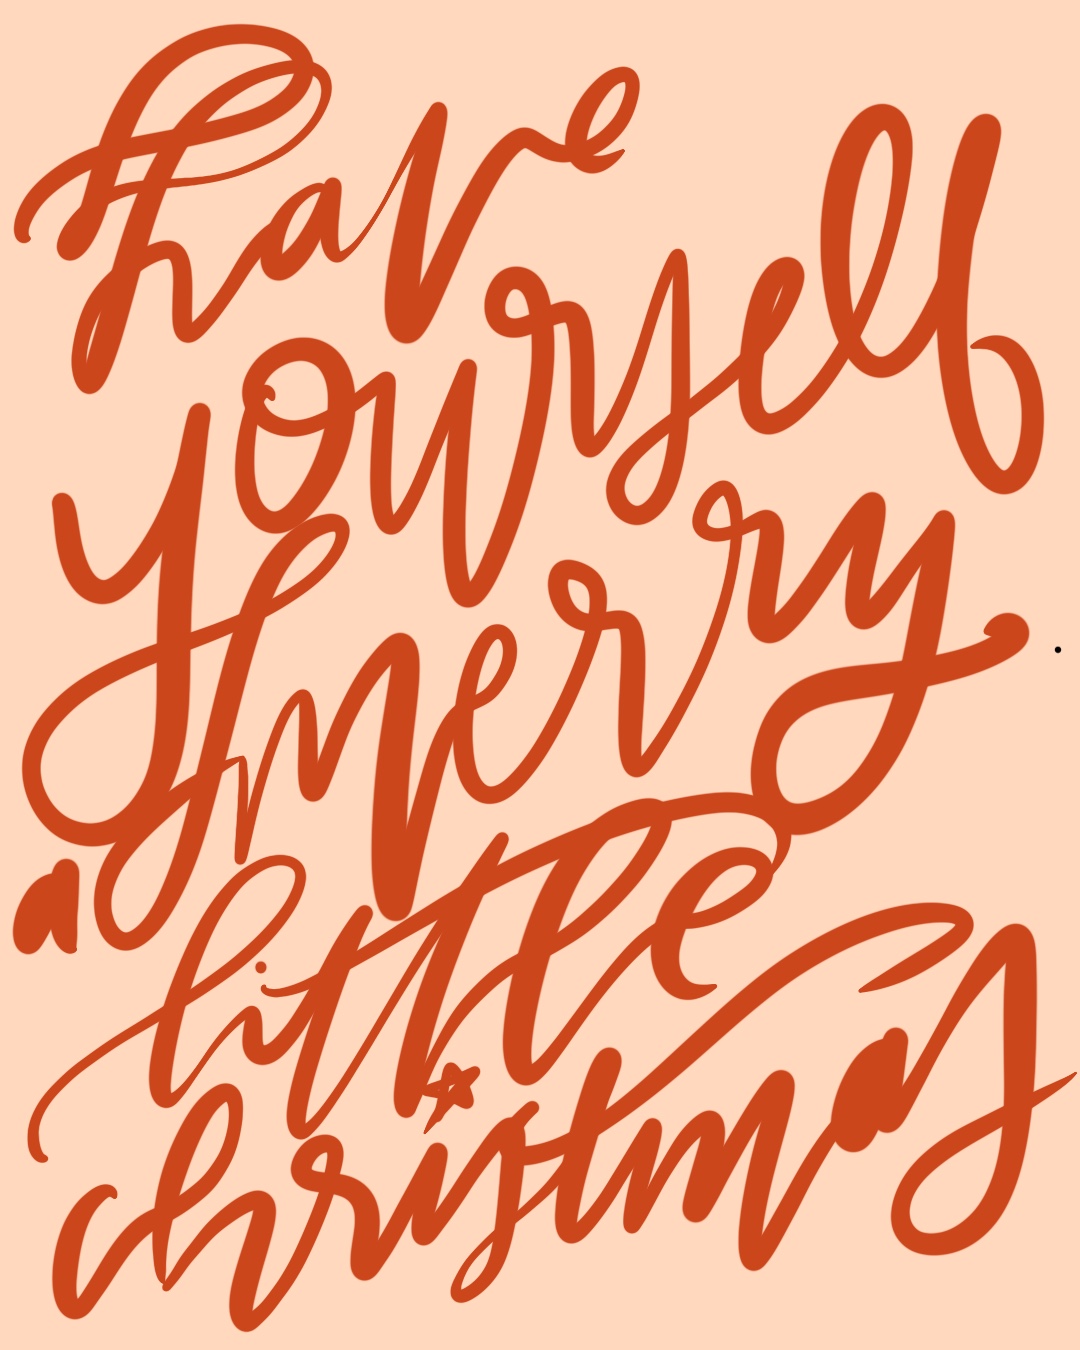 have
yourself
a merry
little
christmas